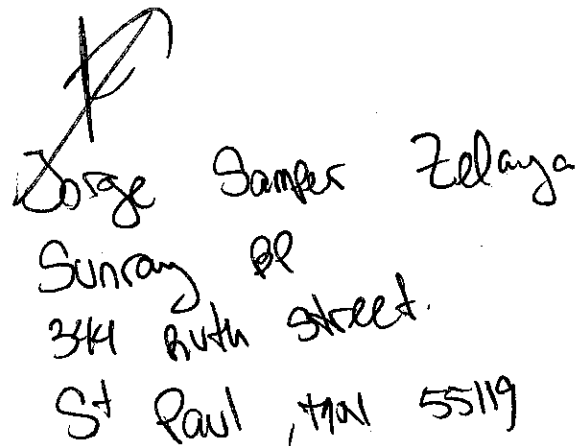 Jorge Samper Zelaya
Sunray BP
344 Ruth Street.
St Paul, MN 55119